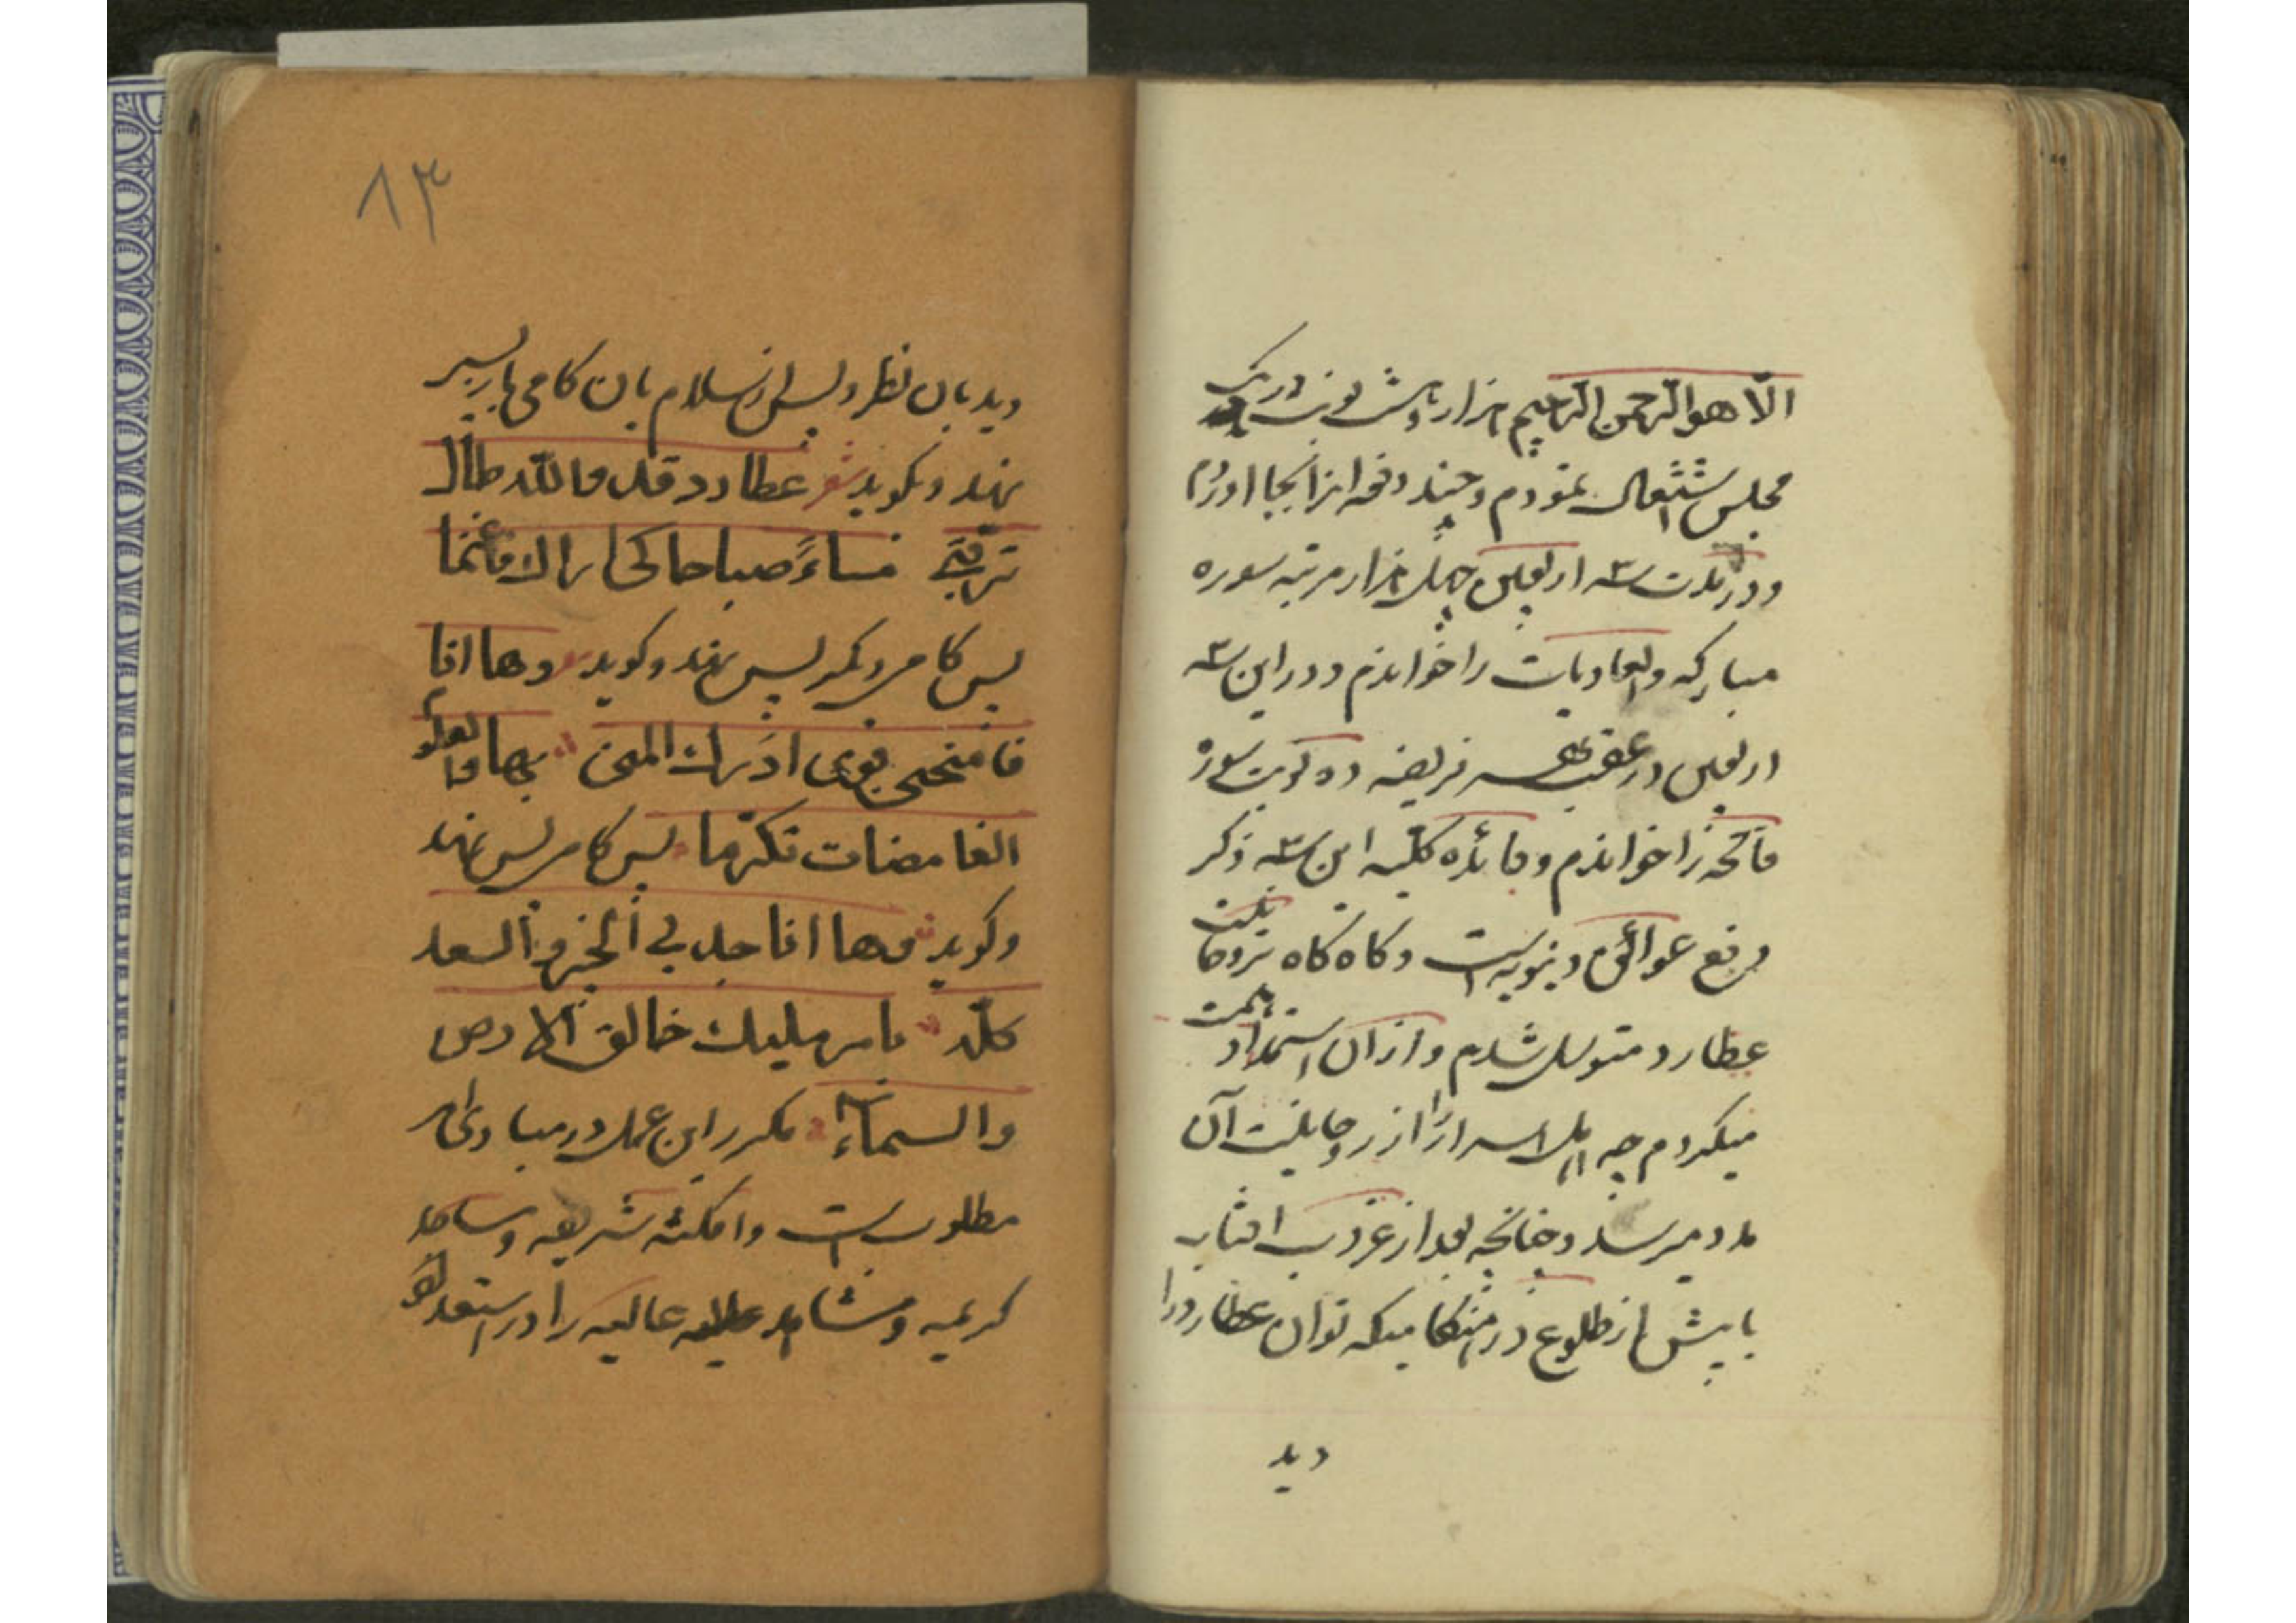 الّا هو الرّحمن الرّحیم هزار و شش نوبت در یک
مجلس اشتغال نمودم و چند دفعه از آنجا آوردم
و در مدت سه اربعین چهل هزار مرتبه سوره
مبارکه والعادیات را خواندم و در این سه
اربعین در عقب هر فریضه ده نوبت سوره
فاتحه را خواندم و فائده کلیه این سه ذکر
رفع عوائق دنیویه است و گاه گاه بروحانیت
عطارد متوسل شدم و از آن استمداد همت
میکردم چه اهل اسرار را از روحانیت آن
مدد میرسد و چنانچه بعد از غروب افتاب
یا پیش از طلوع در هنگامیکه توان عطارد را
دید
۸۳
دید بان نظر و پس از سلام بان کامی باز پس
نهد و بگوید شعر عطارد قد والله طال
ترقبی مساءً صباحا کی اراک فاغنما
پس کامی دیگر پس نهد و گوید وها انا
فامنحنی قوی ادرک المنی بها والعلوم
الغامضات تکرّما پس کامی پس نهد
و گوید وها انا جد لی الخیر والسعد
کلّه بامر ملیک خالق الارض
والسماء مکرر این عمل در مبادی
مطلوب است و امکنه شریفه و مساجد
کریمه و مشاهد عالیه را در استعداد